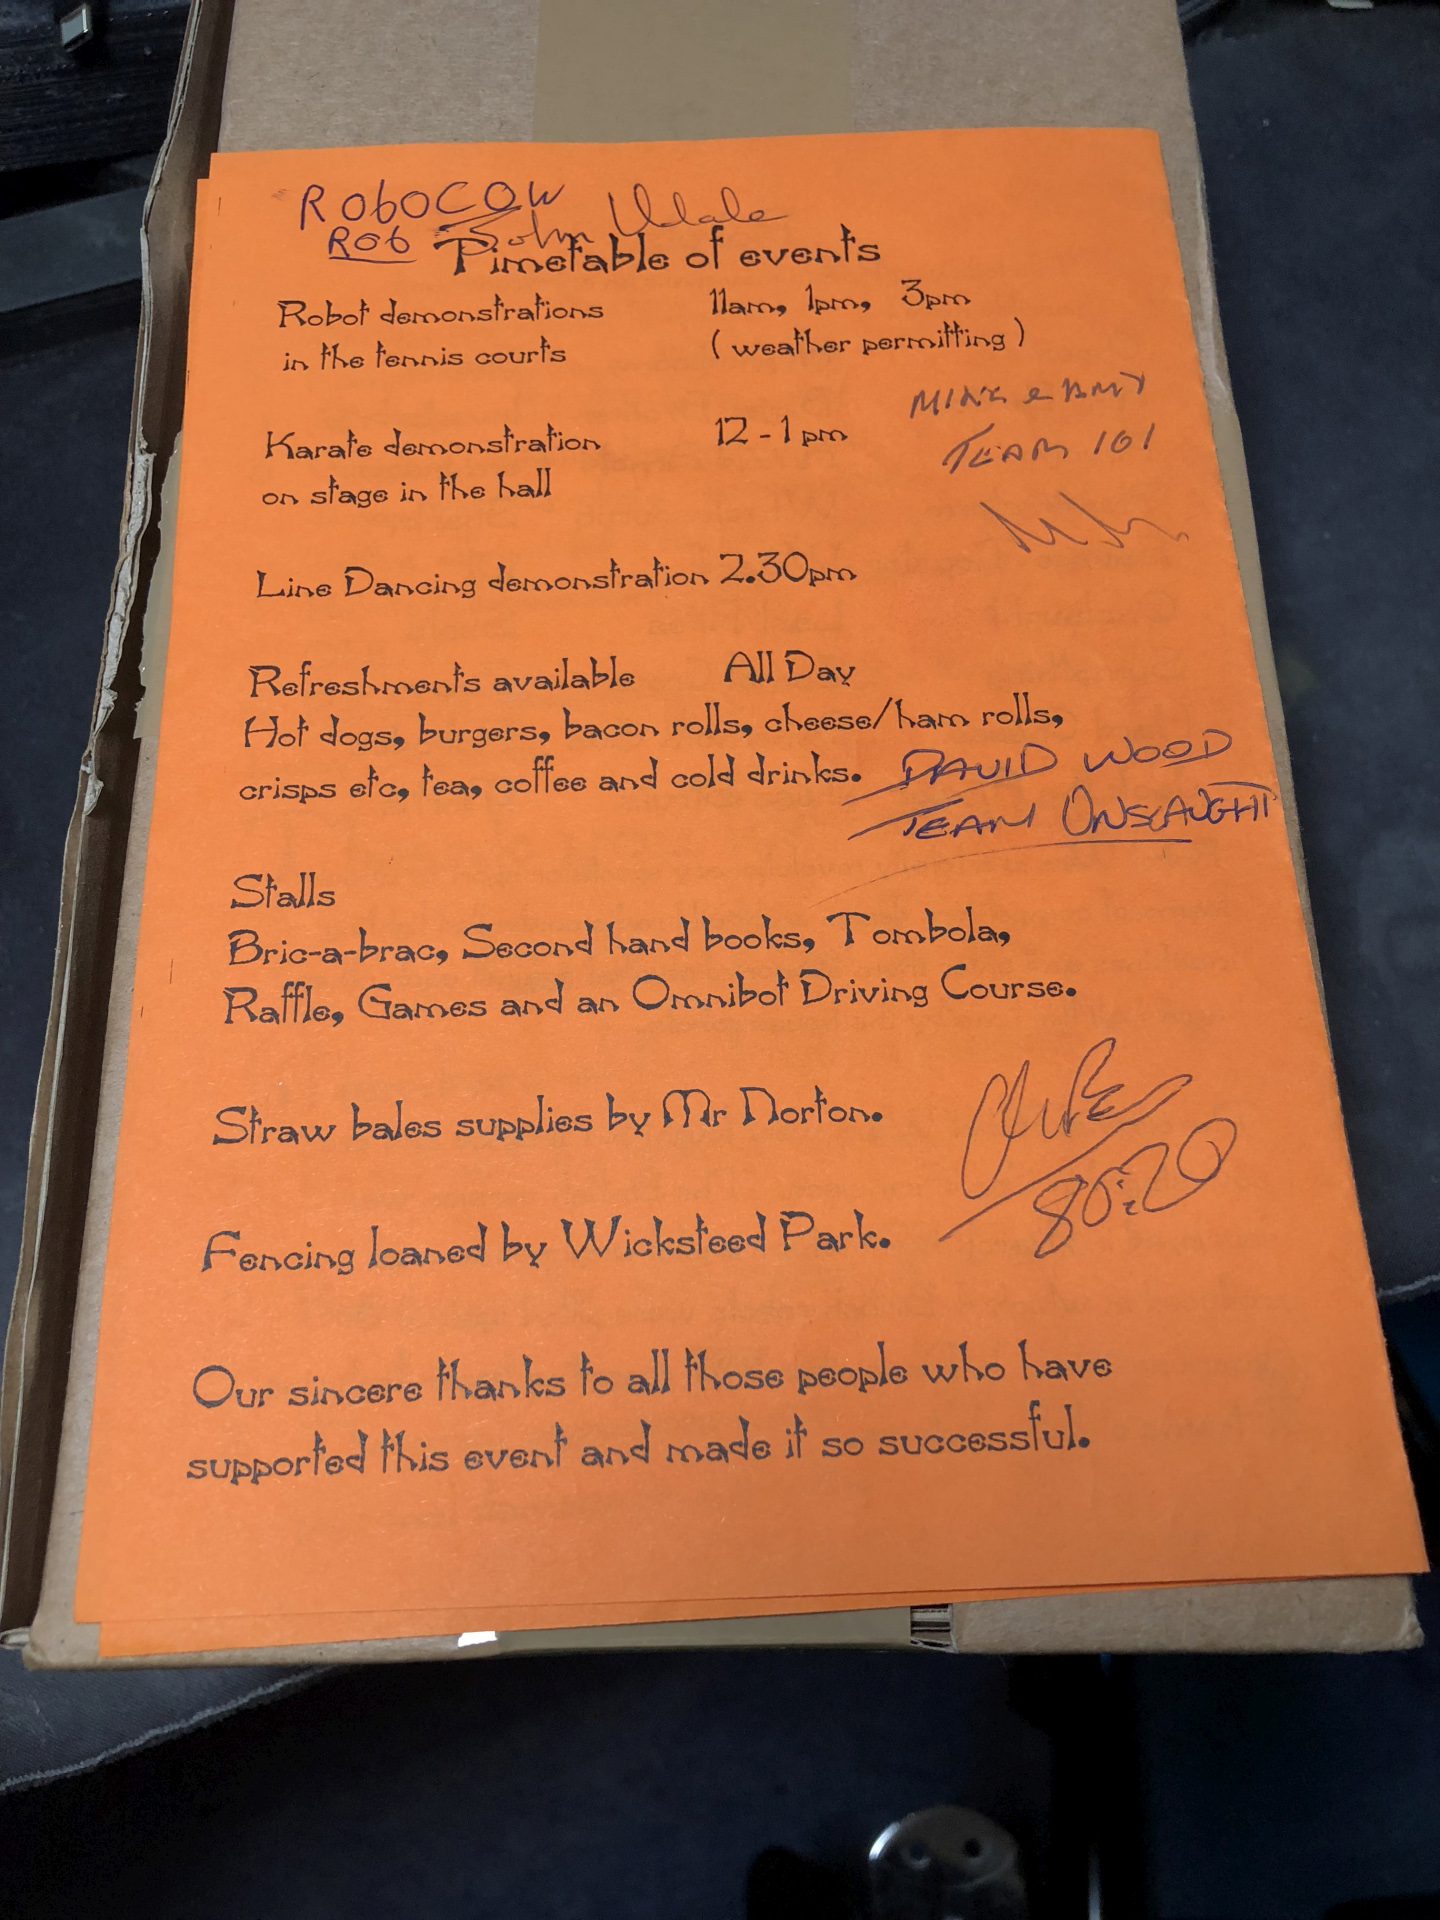 ROBOCOW
ROB John
Timetable of events
Robot demonstrations 11am, 1pm, 3pm
in the tennis courts ( weather permitting )
Karate demonstration 12 - 1 pm
on stage in the hall
TEAM 101
Line Dancing demonstration 2.30pm
Refreshments available All Day
Hot dogs, burgers, bacon rolls, cheese/ham rolls,
crisps etc, tea, coffee and cold drinks. DAVID WOOD
TEAM ONSLAUGHT
Stalls
Bric-a-brac, Second hand books, Tombola,
Raffle, Games and an Omnibot Driving Course.
Straw bales supplies by Mr Norton.
80:20
Fencing loaned by Wicksteed Park.
Our sincere thanks to all those people who have
supported this event and made it so successful.